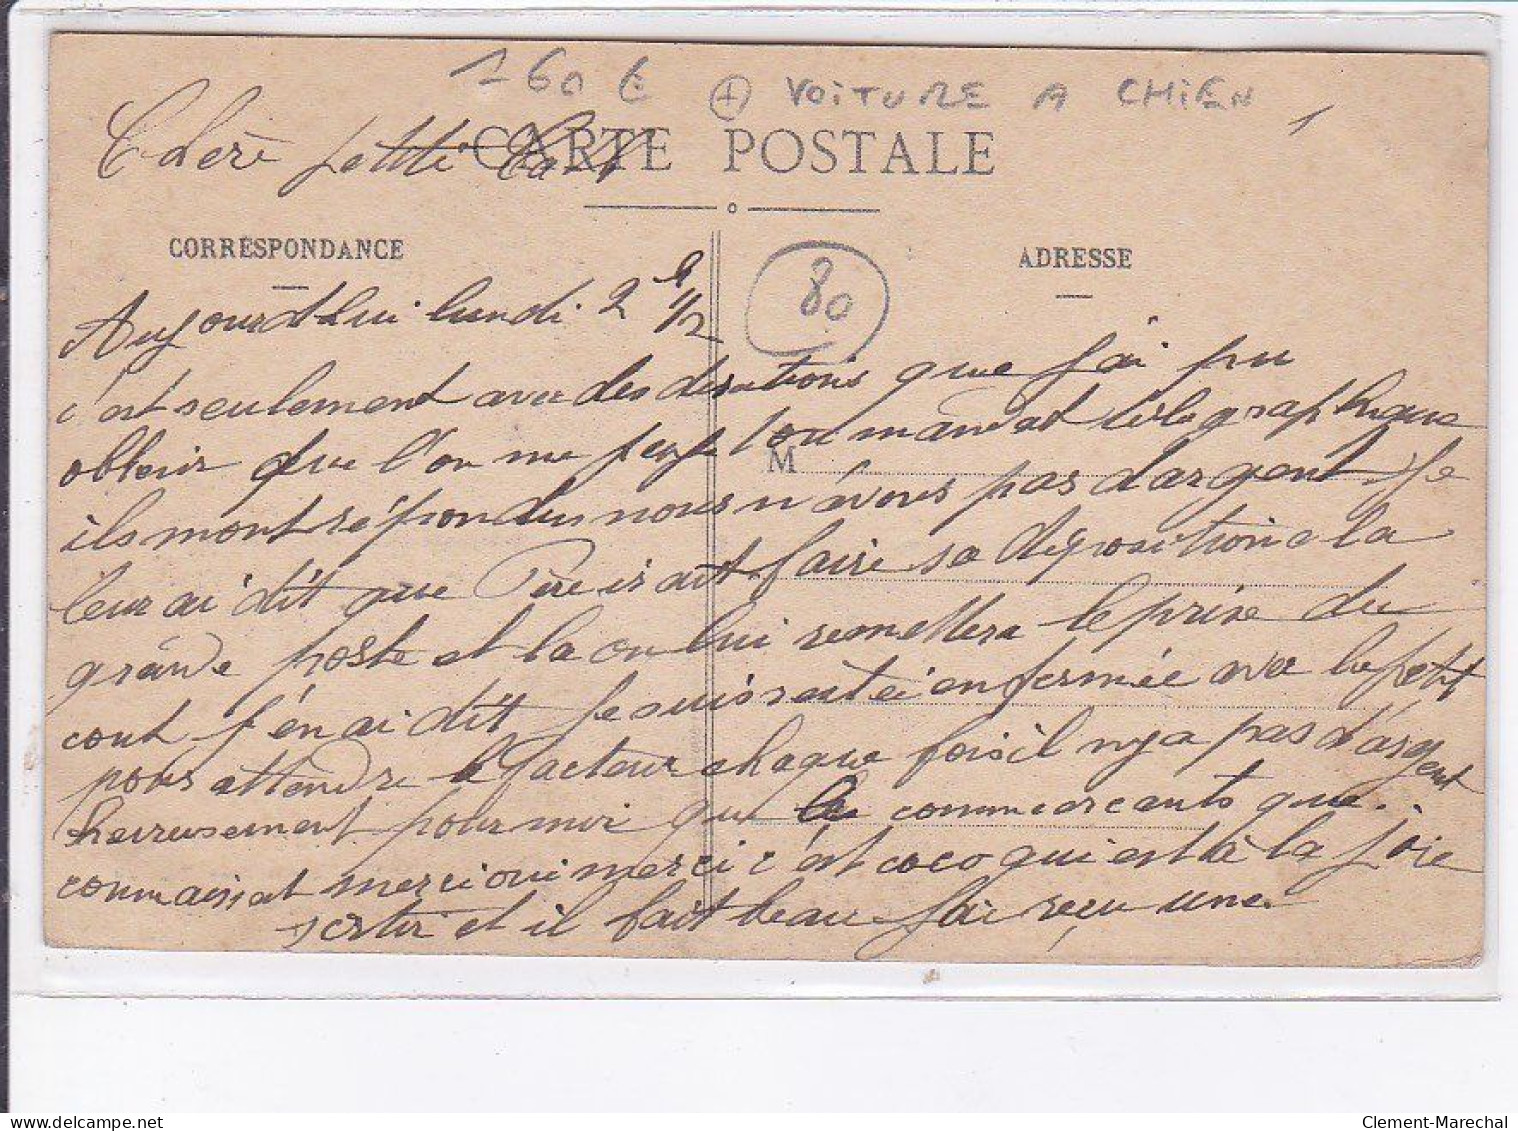 160 € + VOITURE A CHIEN
1
Chère petite
CARTE POSTALE
CORRESPONDANCE
ADRESSE
80
M
Aujourd'hui lundi 2 h 1/2
c'est seulement avec des que j'ai pu
obtenir que l'on me paye ton mandat télégraphique
ils mont répondus nous n'avons pas d'argent Je
leur ai dit que Père irait faire sa déposition a la
grande poste et la on lui remettera le prix du
cout j'en ai dit Je suis restée enfermée avec le petit
pour attendre le facteur chaque fois il ny a pas d'argent
heureusement pour moi que les commercants que..
connaissat merci oui merci c'est coco qui est à la joie
sortir et il fait beau j'ai reçu une
Clement-Marechal